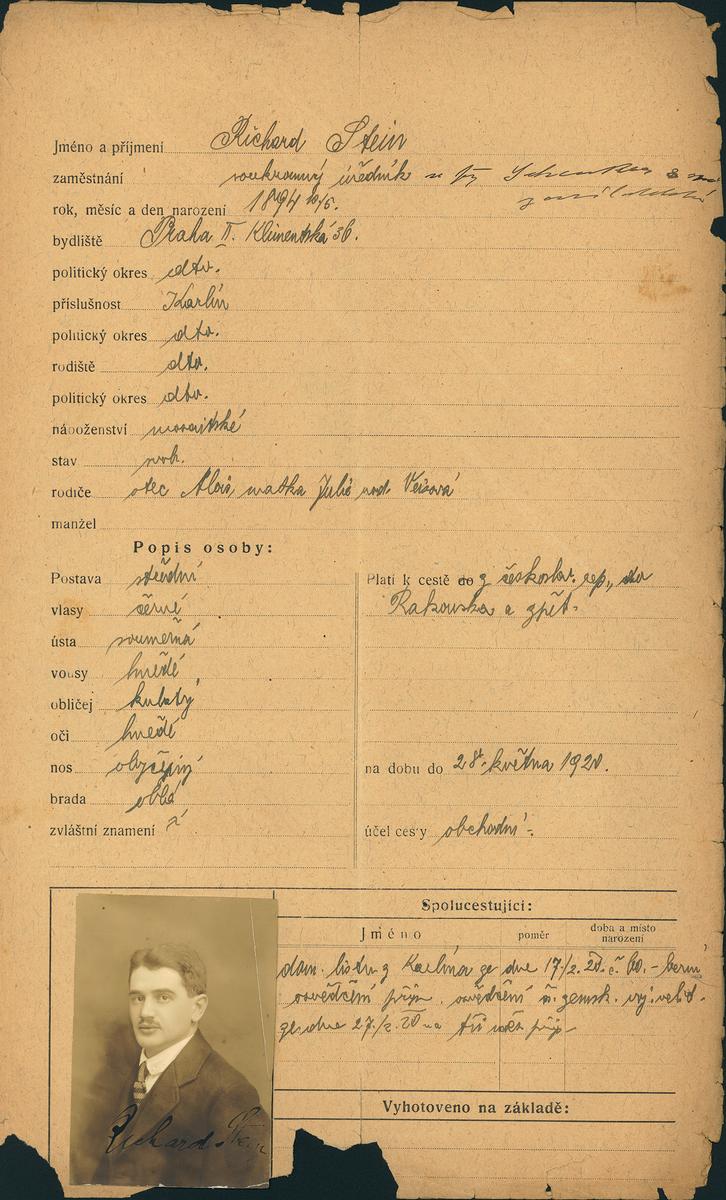 Jméno a příjmení Richard Stein
zaměstnání soukromný úředník u fy Schenker &
rok, měsíc a den narození 1894
bydliště Praha II. Klimentská 36.
politický okres dto.
příslušnost Karlín
politický okres dto.
rodiště dto.
politický okres dto.
náboženství mosaitské
stav svob.
rodiče otec Alois matka Julie rod.
manžel
Popis osoby:
Postava střední
vlasy černé
ústa souměrná
vousy hnědé
obličej kulatý
oči hnědé
nos obyčejný
brada oblá
zvláštní znamení
Platí k cestě do z českoslov. rep., do
Rakouska a zpět.
na dobu do 28. května 1920.
účel cesty obchodní
Spolucestující:
Jméno poměr doba a místo narození
dom. listu z Karlína ze dne 17./2. 20. č. 60. -
osvědčení osvědčení zemsk.
ze dne 27./2. 20 na
Vyhotoveno na základě:
Richard Stein